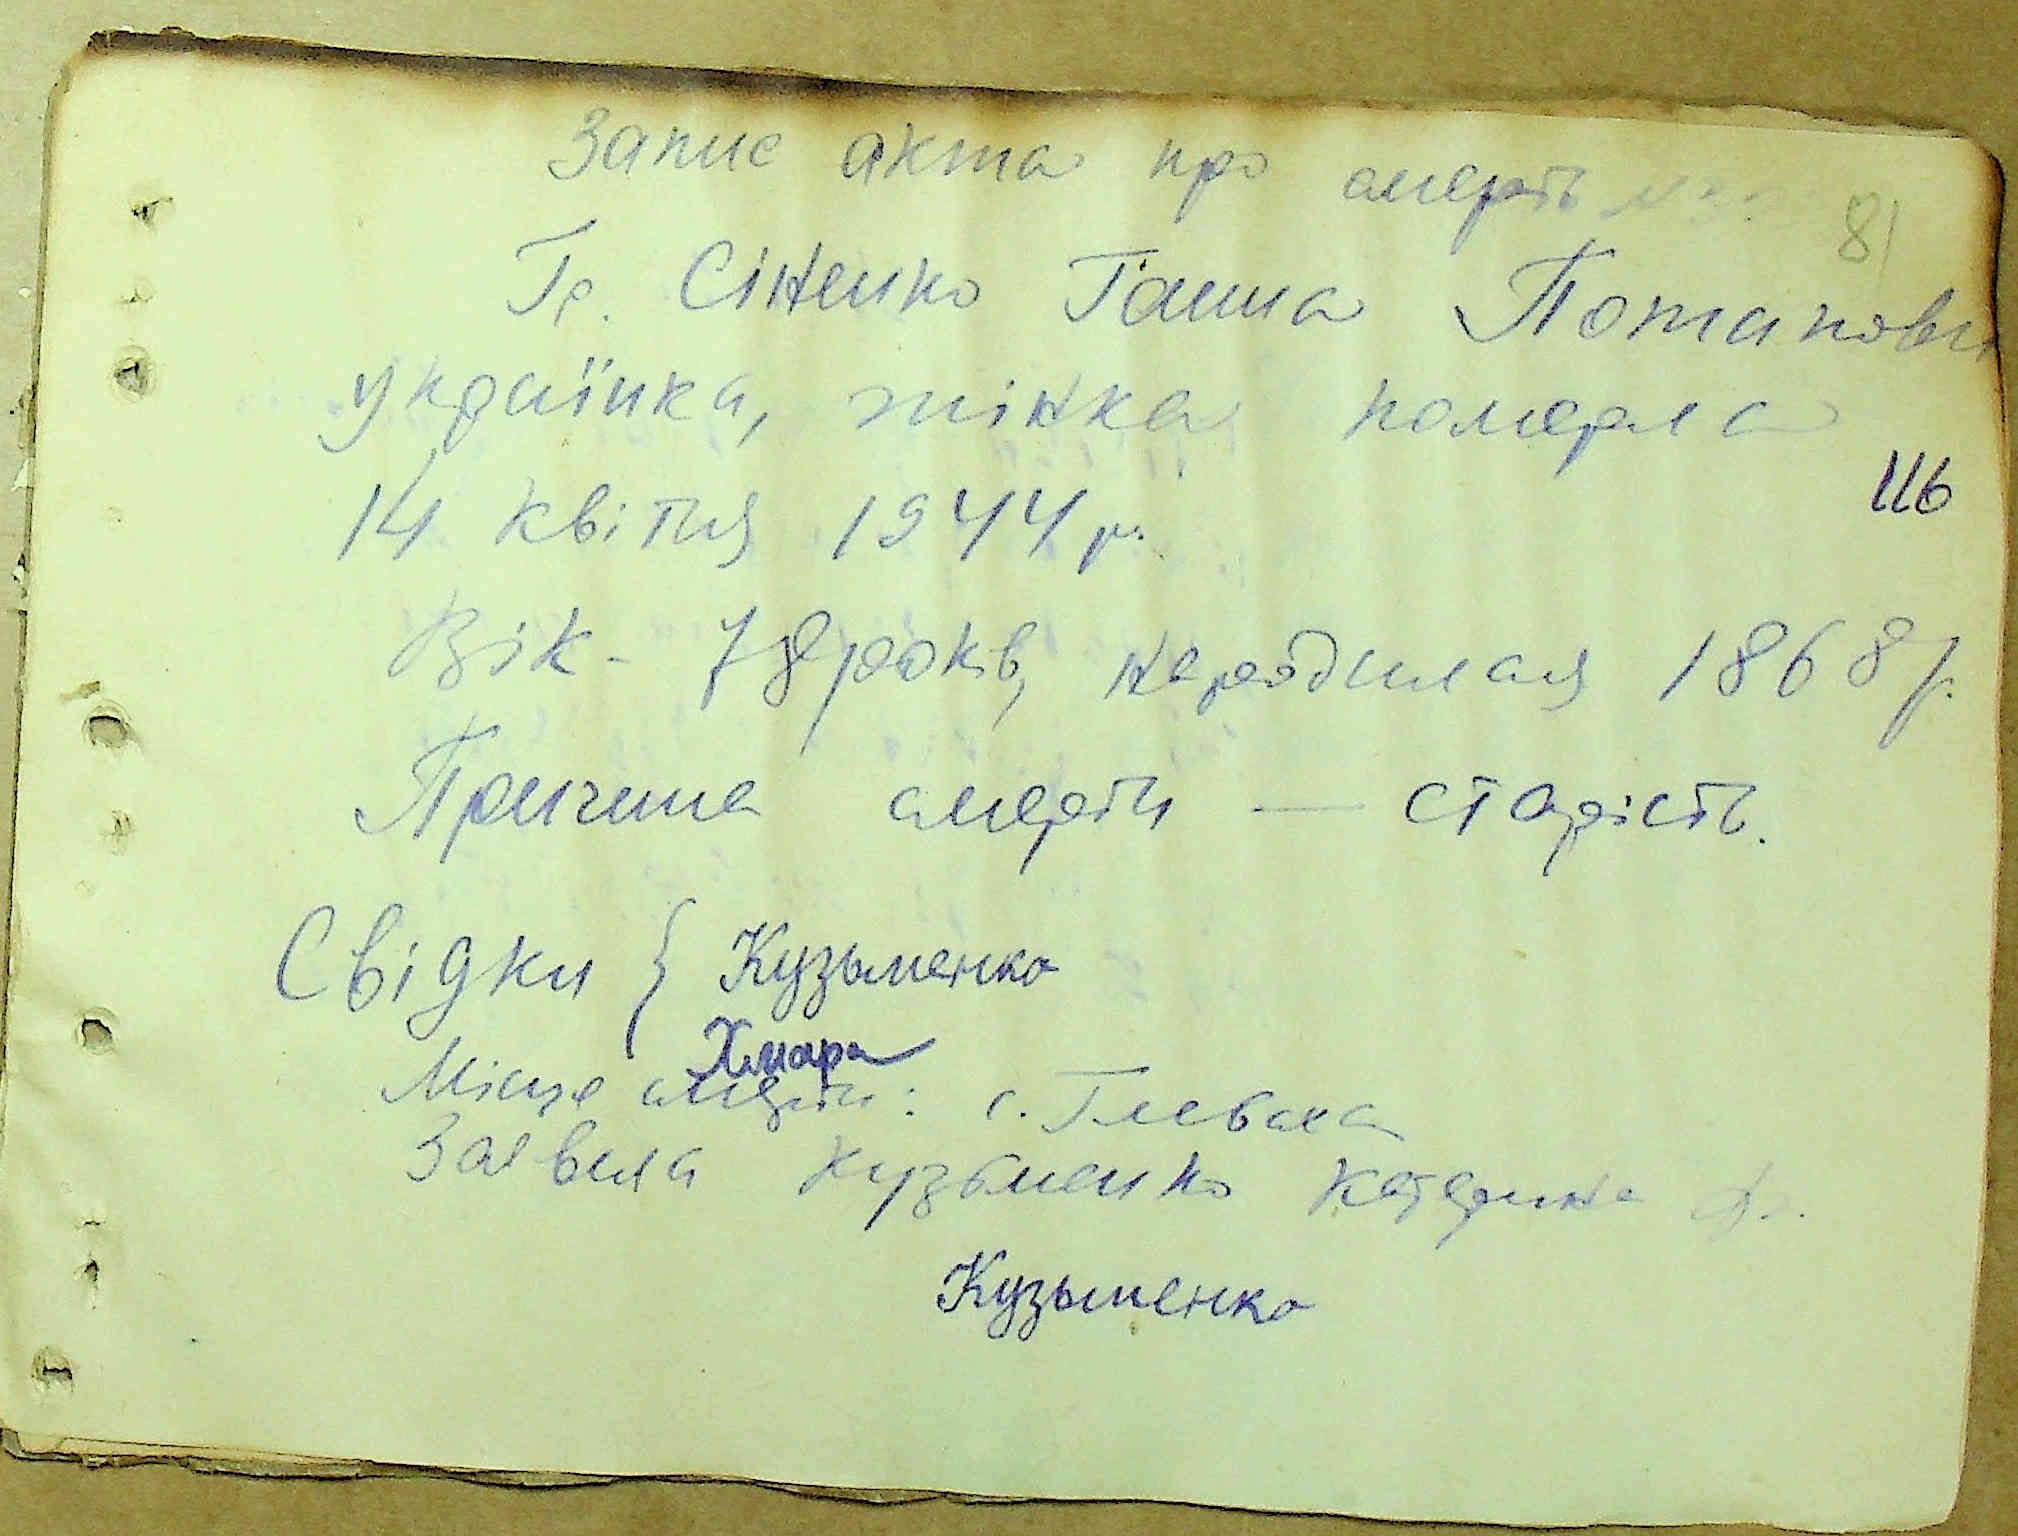 Запис акта про смерть
81
Гр. Сіненко Ганна Потапов
українка, жінка померла
116
14 квітня 1944 р.
Вік - 78 років, народилася 1868 р.
Причина смерти — старість.
Свідки { Кузьменко
Хмара
Місце смерти: с. Глеваха
Заявила Кузьменко Катерина
Кузьменко